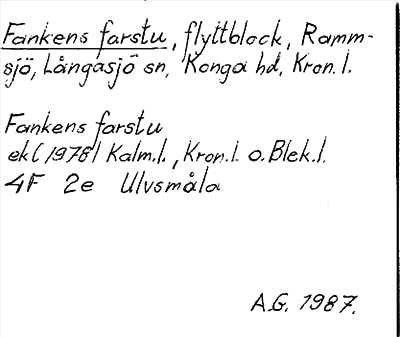 Fankens farstu, flyttblock, Ramm-
sjö, Långasjö sn, Konga hd, Kron.l.
Fankens farstu
ek (1978) Kalm.l., Kron.l. o. Blek.l.
4F 2e Ulvsmåla
A.G. 1987.